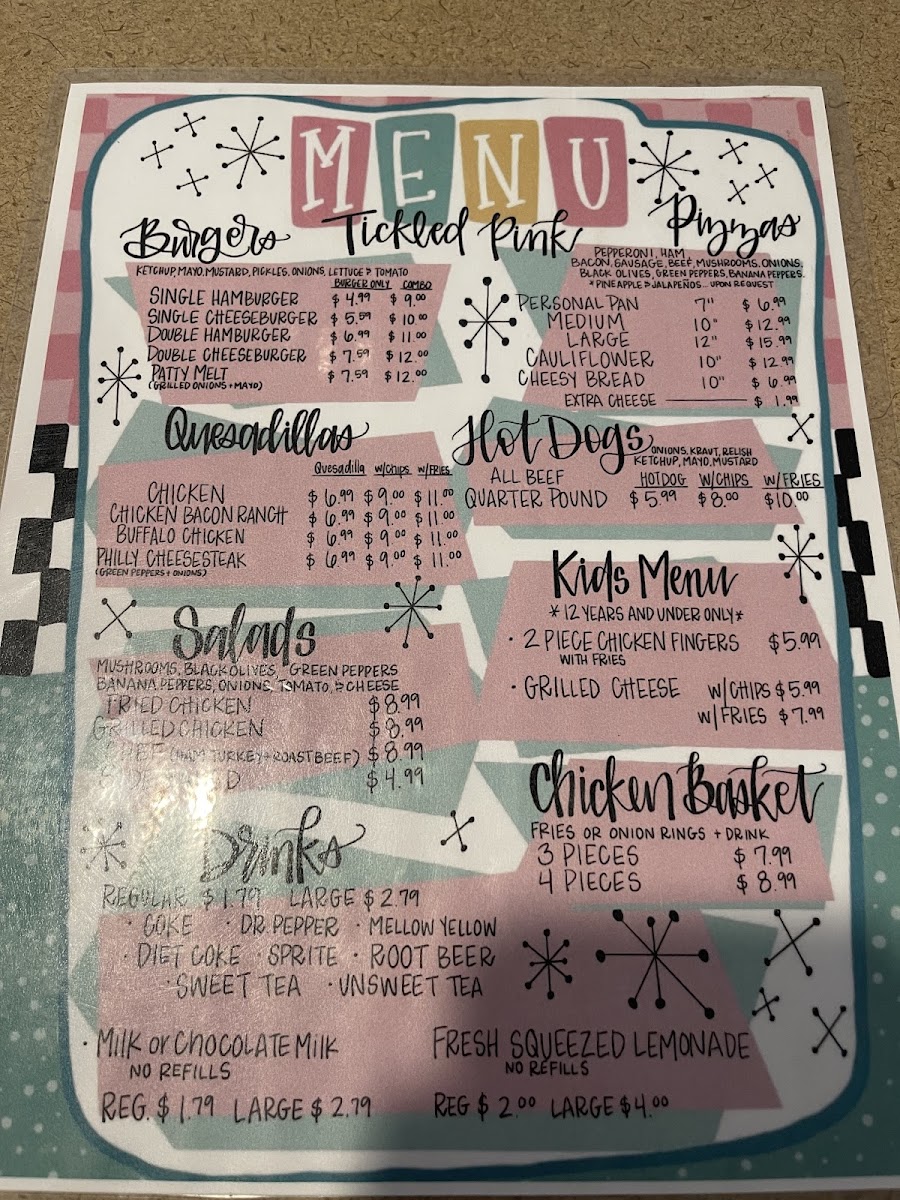 MENU
Tickled Pink
Burgers
KETCHUP, MAYO, MUSTARD, PICKLES, ONIONS, LETTUCE & TOMATO
BURGER ONLY COMBO
SINGLE HAMBURGER $4.99 $9.00
SINGLE CHEESEBURGER $5.59 $10.00
DOUBLE HAMBURGER $6.99 $11.00
DOUBLE CHEESEBURGER $7.59 $12.00
PATTY MELT $7.59 $12.00
(GRILLED ONIONS + MAYO)
Pizzas
PEPPERONI, HAM
BACON, SAUSAGE, BEEF, MUSHROOMS, ONIONS,
BLACK OLIVES, GREEN PEPPERS, BANANA PEPPERS.
*PINEAPPLE & JALAPEÑOS... UPON REQUEST
PERSONAL PAN 7" $6.99
MEDIUM 10" $12.99
LARGE 12" $15.99
CAULIFLOWER 10" $12.99
CHEESY BREAD 10" $6.99
EXTRA CHEESE $1.99
Quesadillas
Quesadilla W/CHIPS W/FRIES
CHICKEN $6.99 $9.00 $11.00
CHICKEN BACON RANCH $6.99 $9.00 $11.00
BUFFALO CHICKEN $6.99 $9.00 $11.00
PHILLY CHEESESTEAK $6.99 $9.00 $11.00
(GREEN PEPPERS + ONIONS)
Hot Dogs
ONIONS, KRAUT, RELISH
KETCHUP, MAYO, MUSTARD
ALL BEEF HOTDOG W/CHIPS W/FRIES
QUARTER POUND $5.99 $8.00 $10.00
Kids Menu
*12 YEARS AND UNDER ONLY*
· 2 PIECE CHICKEN FINGERS $5.99
WITH FRIES
· GRILLED CHEESE W/CHIPS $5.99
W/FRIES $7.99
Salads
MUSHROOMS, BLACK OLIVES, GREEN PEPPERS
BANANA PEPPERS, ONIONS, TOMATO, & CHEESE
FRIED CHICKEN $8.99
GRILLED CHICKEN $8.99
CHEF (HAM TURKEY + ROAST BEEF) $8.99
$4.99
Chicken Basket
FRIES OR ONION RINGS + DRINK
3 PIECES $7.99
4 PIECES $8.99
Drinks
REGULAR $1.79 LARGE $2.79
· COKE · DR. PEPPER · MELLOW YELLOW
· DIET COKE · SPRITE · ROOT BEER
· SWEET TEA · UNSWEET TEA
· MILK or CHOCOLATE MILK
NO REFILLS
REG. $1.79 LARGE $2.79
FRESH SQUEEZED LEMONADE
NO REFILLS
REG $2.00 LARGE $4.00